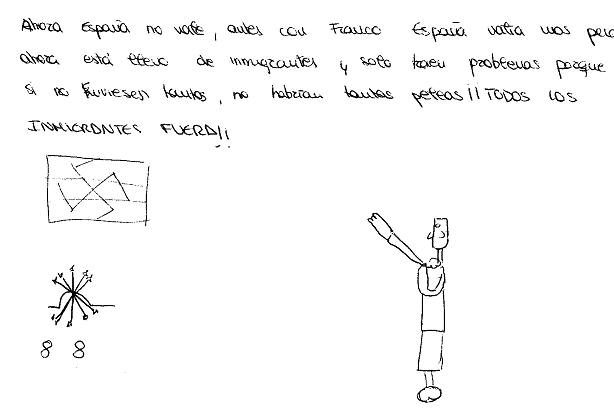 Ahora España no vale, antes con Franco España valia mas pero
ahora está lleno de inmigrantes y solo traen problemas porque
si no tuviesen tantos, no habrian tantas peleas!! TODOS LOS
INMIGRANTES FUERA!!
8 8